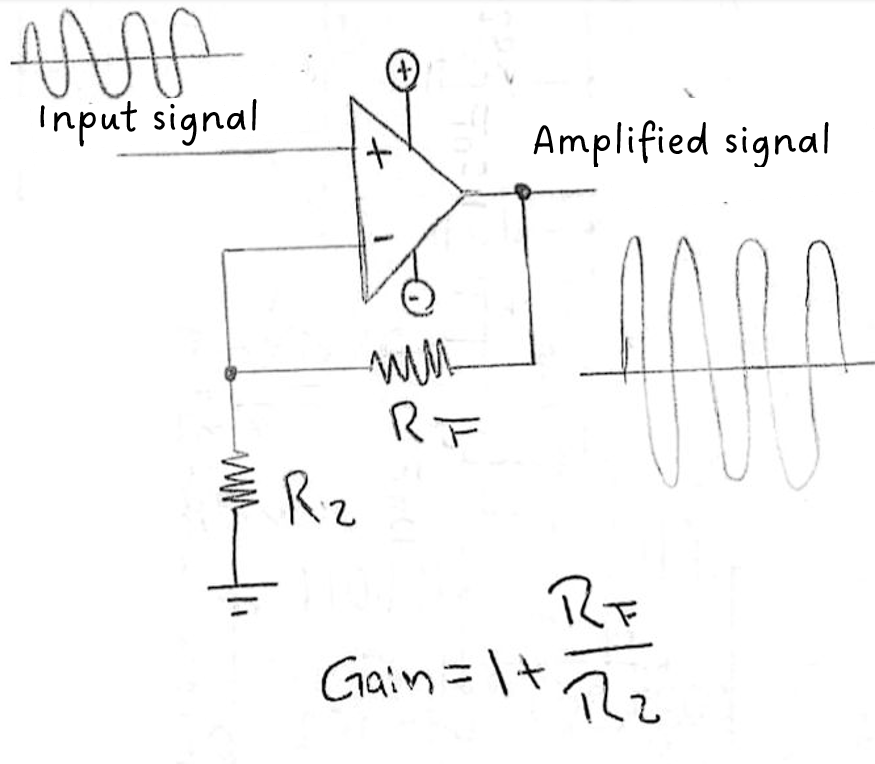 Input signal
+
Amplified signal
+
-
-
RF
R2
Gain = 1 + RF/R2